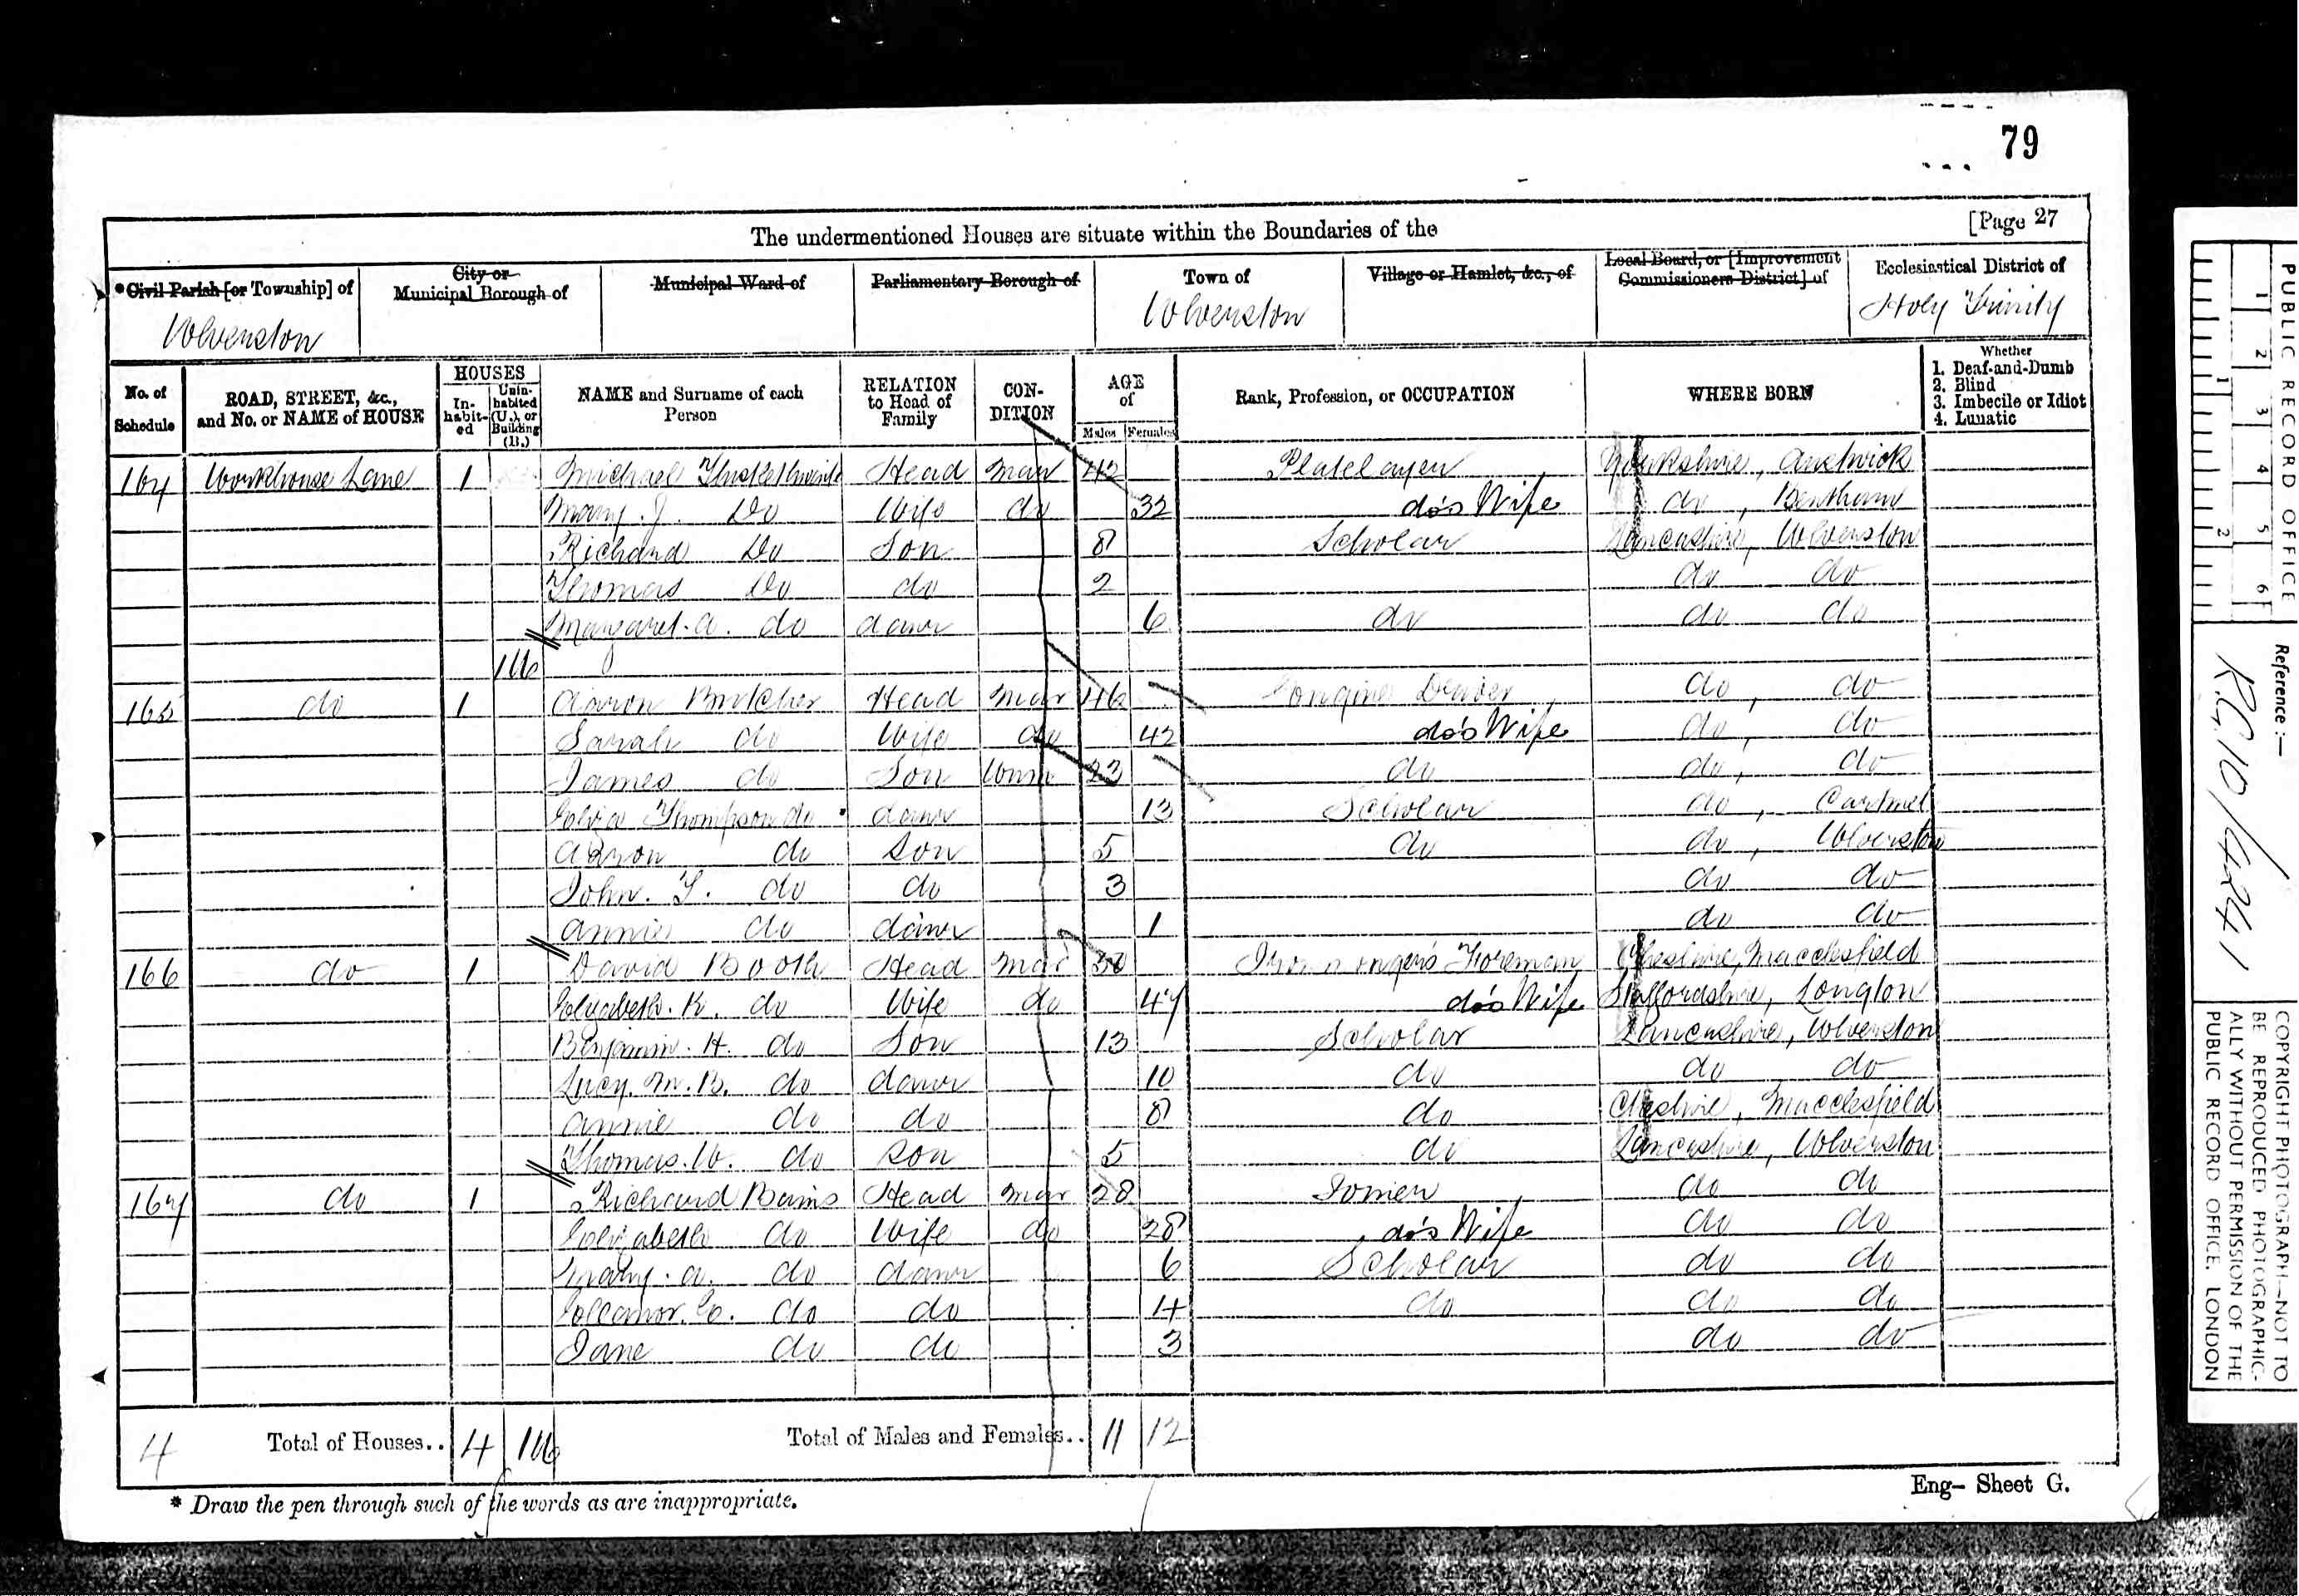 79
[Page 27
The undermentioned Houses are situate within the Boundaries of the
*Civil Parish [or Township] of
City or Municipal Borough of
Municipal Ward of
Parliamentary Borough of
Town of
Village or Hamlet, &c., of
Local Board, or [Improvement Commissioners District] of
Ecclesiastical District of
Ulverston Ulverston Holy Trinity
No. of Schedule
ROAD, STREET, &c., and No. or NAME of HOUSE
HOUSES
In-habit-ed
Unin-habited (U.), or Building (B.)
NAME and Surname of each Person
RELATION to Head of Family
CON-DITION
AGE of
Males Females
Rank, Profession, or OCCUPATION
WHERE BORN
Whether
1. Deaf-and-Dumb
2. Blind
3. Imbecile or Idiot
4. Lunatic
164 Workhouse Lane 1 Michael Thistlethwaite Head Mar 42 Platelayer Yorkshire, Austwick
Mary. J. Do Wife do 32 do's Wife do, Bentham
Richard Do Son 8 Scholar Lancashire, Ulverston
Thomas Do do 2 do do
Margaret. A. do daur 6 do do do
1U
165 do 1 Aaron Butcher Head Mar 46 Engine Driver do, do
Sarah do Wife do 42 do's Wife do, do
James do Son Unm 23 do do, do
Thompson do daur 13 Scholar do, Cartmel
Aaron do Son 5 do do, Ulverston
John. T. do do 3 do do
Annie do daur 1 do do
166 do 1 David Booth Head Mar Ironmonger's Foreman Cheshire, Macclesfield
Elizabeth. K. do Wife do 47 do's Wife Staffordshire, Longton
Benjamin. H. do Son 13 Scholar Lancashire, Ulverston
Lucy. M. B. do daur 10 do do do
Annie do do 8 do Cheshire, Macclesfield
Thomas. W. do Son 5 do Lancashire, Ulverston
167 do 1 Richard Bains Head Mar 28 Joiner do do
Elizabeth do Wife do 28 do's Wife do do
Mary. A. do daur 6 Scholar do do
Eleanor. E. do do 4 do do do
Jane do do 3 do do
4 Total of Houses.. 4 1U Total of Males and Females.. 11 12
* Draw the pen through such of the words as are inappropriate.
Eng- Sheet G.
PUBLIC RECORD OFFICE
1 2 3 4 5 6
1 2
Reference :-
R.G. 10/4241
COPYRIGHT PHOTOGRAPH—NOT TO BE REPRODUCED PHOTOGRAPHIC-ALLY WITHOUT PERMISSION OF THE PUBLIC RECORD OFFICE, LONDON